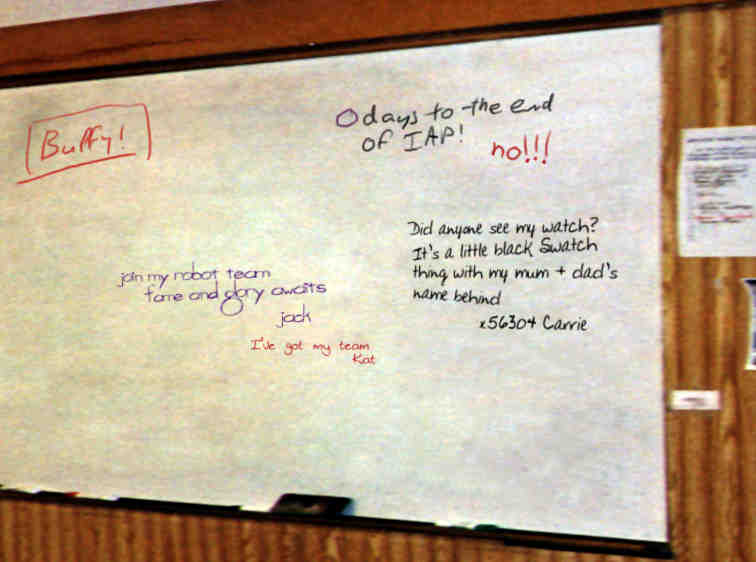 Buffy!
0 days to the end
of IAP!
no!!!
Did anyone see my watch?
It's a little black Swatch
thing with my mum + dad's
name behind
x56304 Carrie
join my robot team
fame and glory awaits
jack
I've got my team
Kat